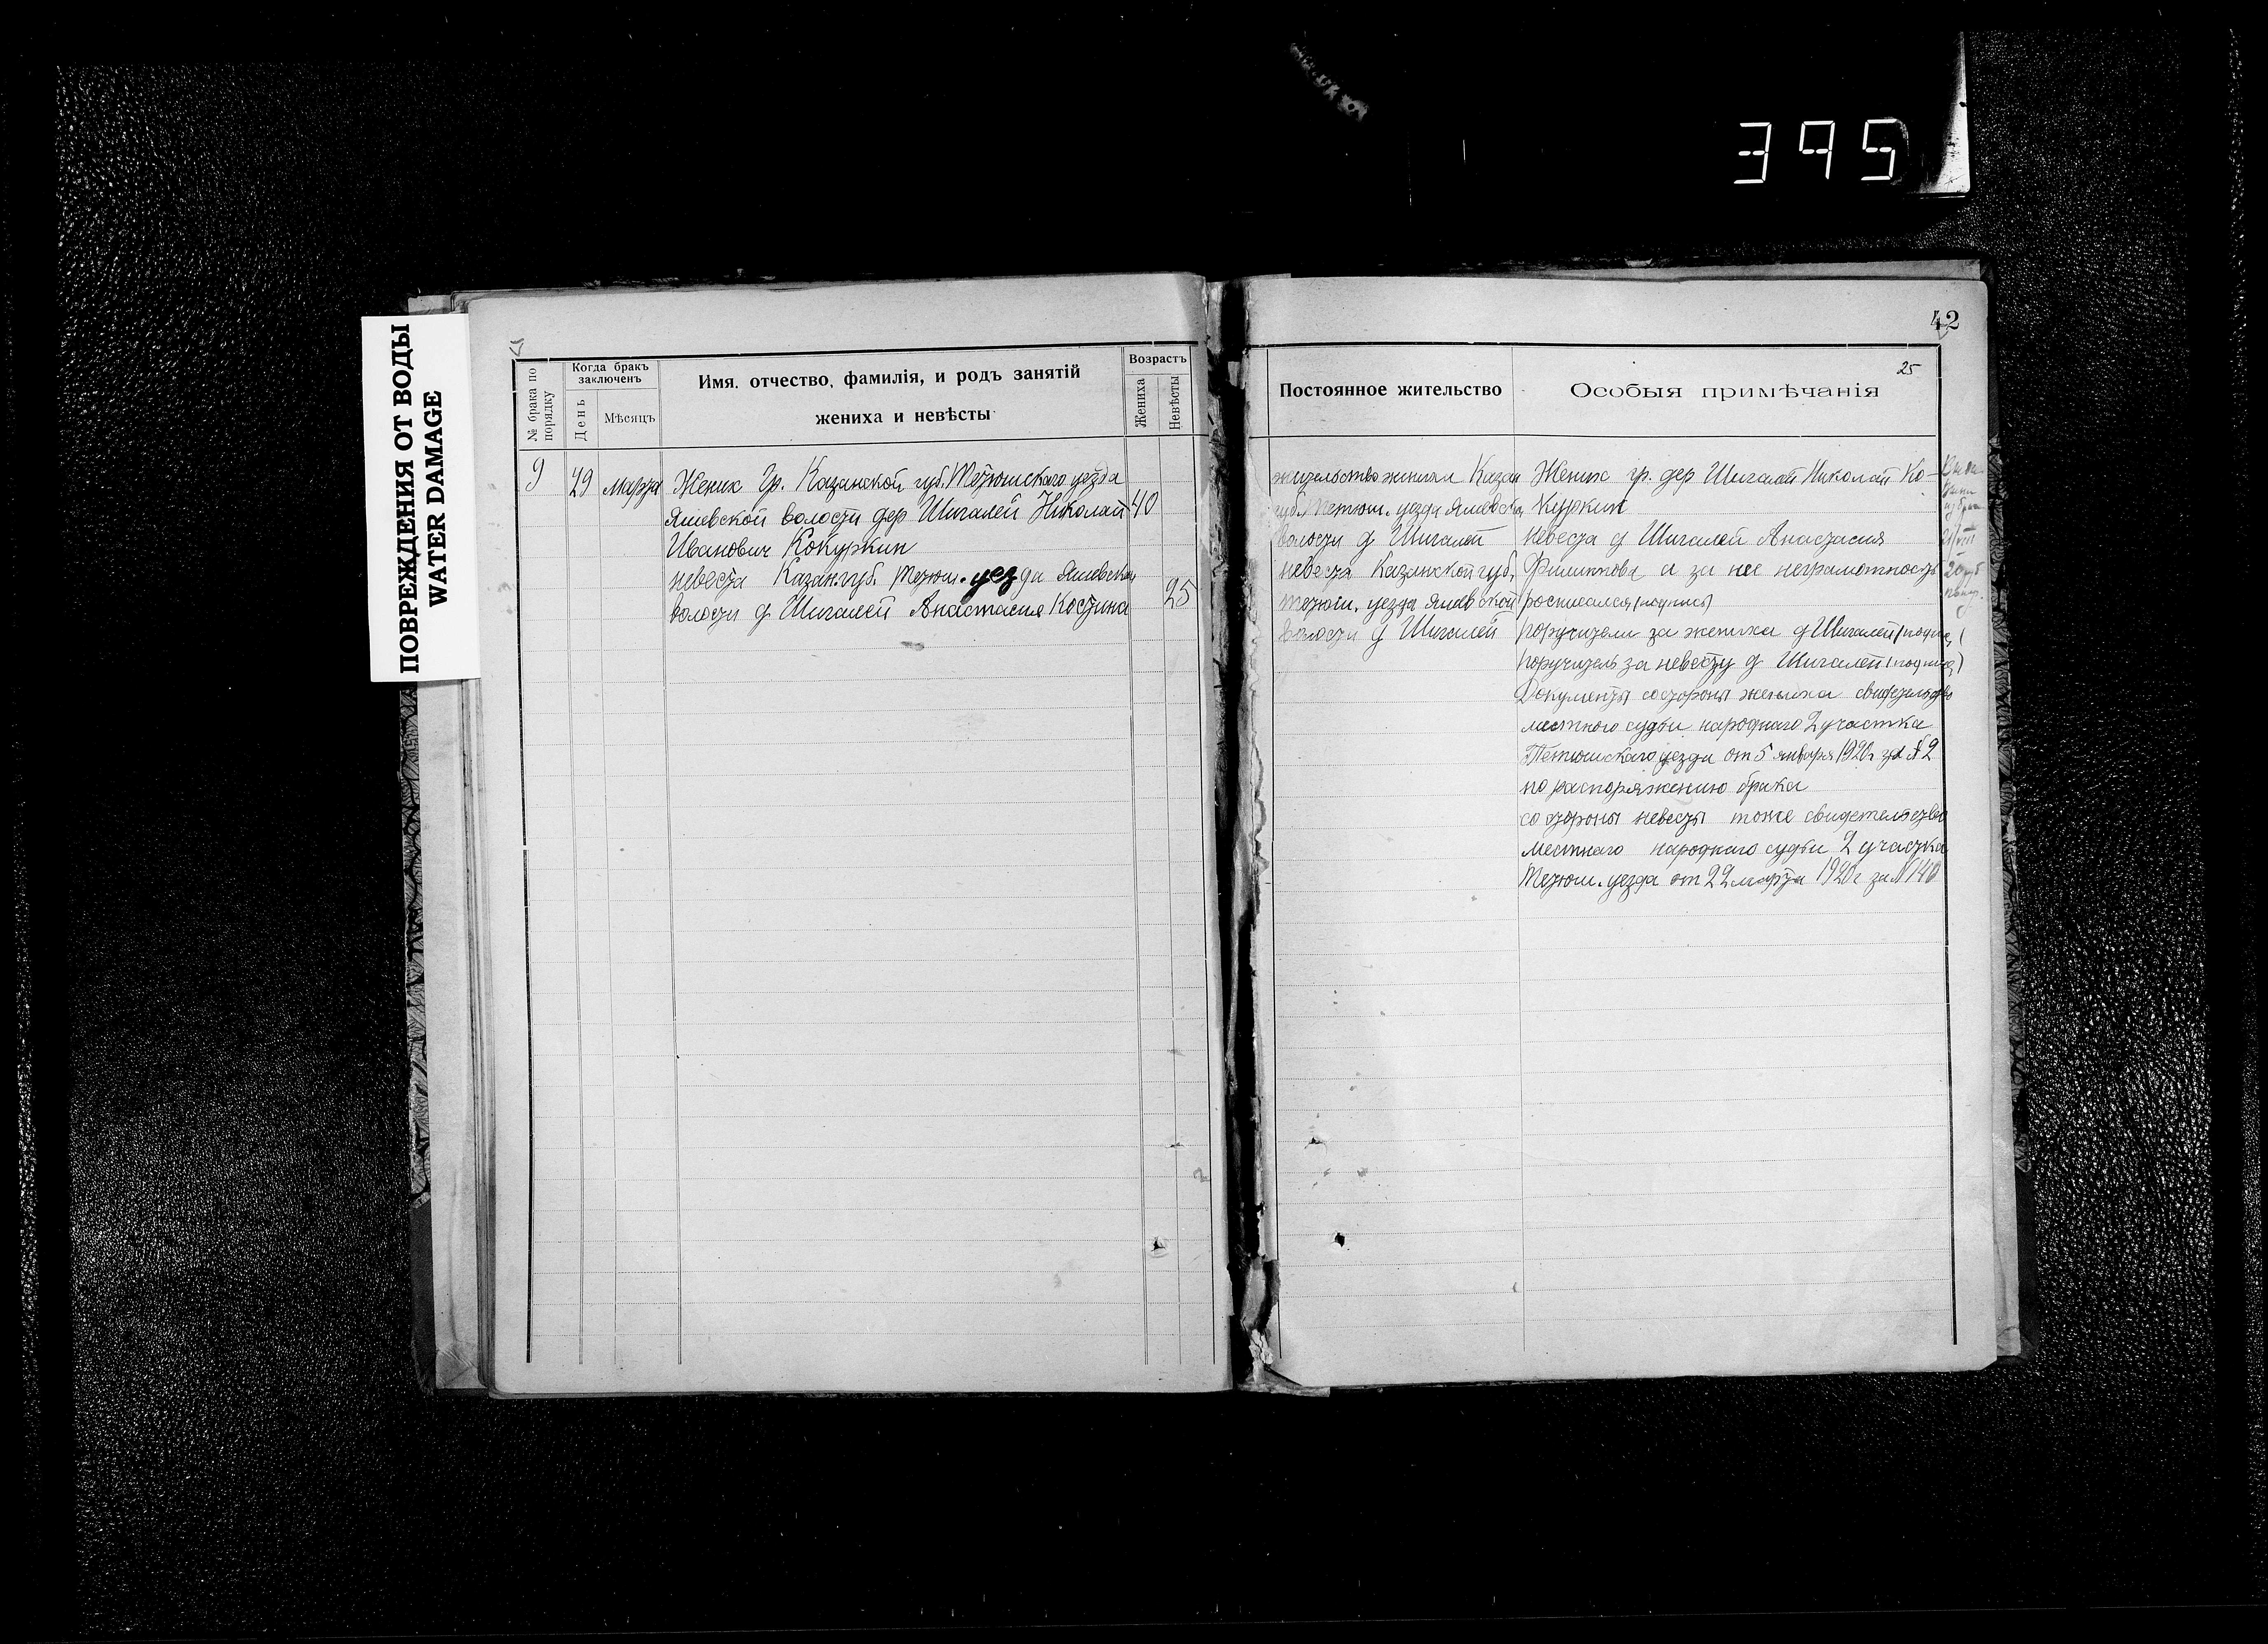 395
ПОВРЕЖДЕНИЯ ОТ ВОДЫ
WATER DAMAGE
42
25
№ брака по порядку
Когда бракъ заключенъ
День
Мѣсяцъ
Имя, отчество, фамилія, и родъ занятій
жениха и невѣсты
Возрастъ
Жениха
Невѣсты
Постоянное жительство
Особыя примѣчанія
9 29 марта Жених гр. Казанской губ. Тетюшскаго уезда
Яшевской волости дер Шигалей Николай 40
Иванович Кокуркин
невеста Казан. губ. Тетюш. уезда Яшевской
волости д Шигалей Анастасия Костина 25
жительство жениха Казан
губ. Тетюш. уезда Яшевской
волости д Шигалей
невеста Казанской губ,
тетюш. уезда Яшевской
волости д Шигалей
Жених гр. дер Шигалей Николай Ко-
куркин
невеста д Шигалей Анастасия
Филиппова а за нее неграмотность
росписался (подпись)
поручители за жениха д Шигалей (подпис,)
поручитель за невесту д Шигалей (подпись)
Документы со стороны жениха свидетельство
местного судьи народнаго 2 участка
Тетюшскаго уезда от 5 января 1920 г за № 2
по распоряжению брака
со стороны невесты тоже свидетельство
местнаго народнаго судьи 2 участка
Тетюш. уезда от 22 марта 1920 г за № 140